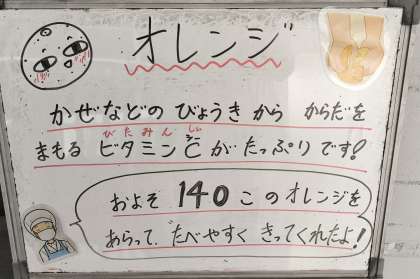 オレンジ
かぜなどの びょうき から からだを
びたみん しぃ
まもる ビタミンC が たっぷり です!
およそ 140 こ の オレンジを
あらって、たべやすく きってくれたよ!